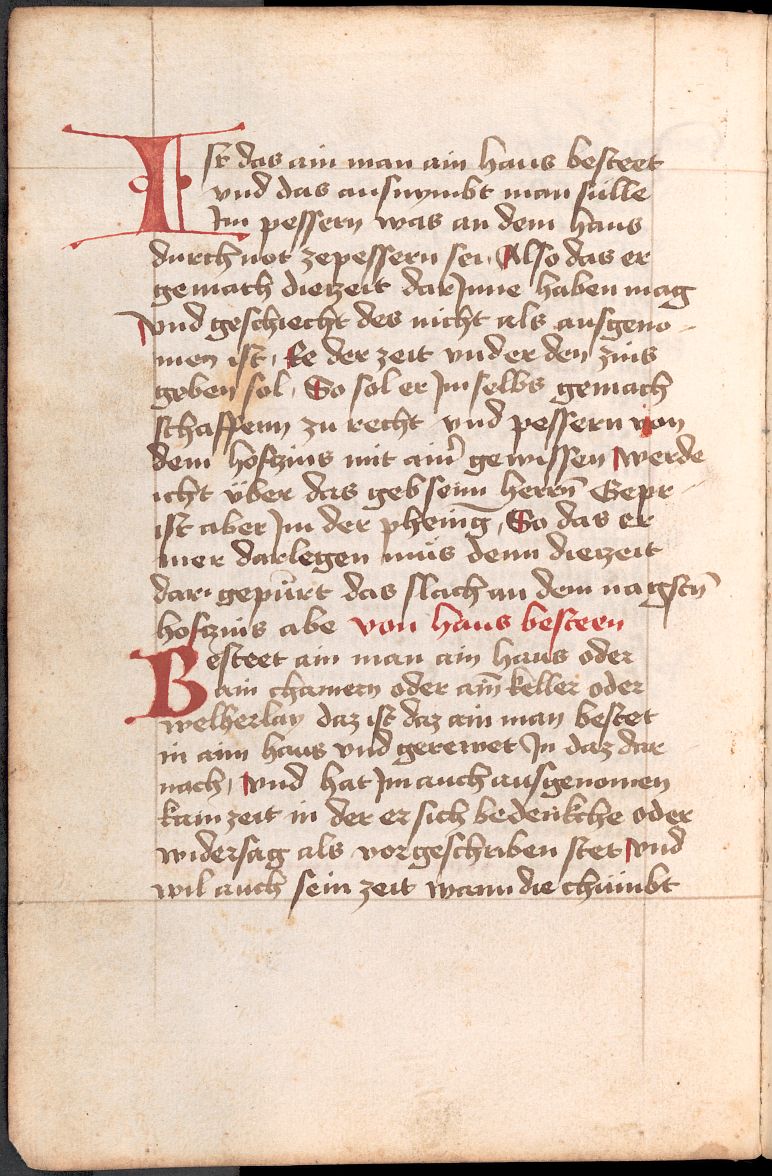 Ist das ain man ain haus besteet
vnd das ausnymbt man sülle
Im pessern was an dem haus
durch not zepessern sei Also das er
gemach die zeit dar Inne haben mag
vnd geschiecht des nicht als ausgeno-
men ist, Ee der zeit vnd er den zins
geben sol, So sol er Im selbs gemach
schaffenn zu recht vnd pessern von
dem hofczins mit aim gewissen werde
icht über das geb seim herrn̄
ist aber Im der phenīg, So das er
mer darlegen mus denn die zeit
dar gepürt das slach an dem nagstn̄
hofczins abe von haus besteen
Besteet ain man ain haus oder
ain chamern oder ain̄ keller oder
welherlay daz ist daz ain man bestet
in aim haus vnd gerewet In daz dar
nach, vnd hat Im auch ausgenomen
kain zeit in der er sich bedenkche oder
widersag als vorgeschriben stet vnd
wil auch sein zeit wann die chümbt